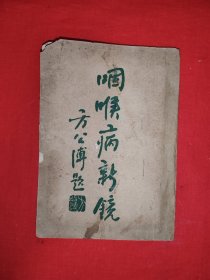 咽喉病新镜
方公溥题